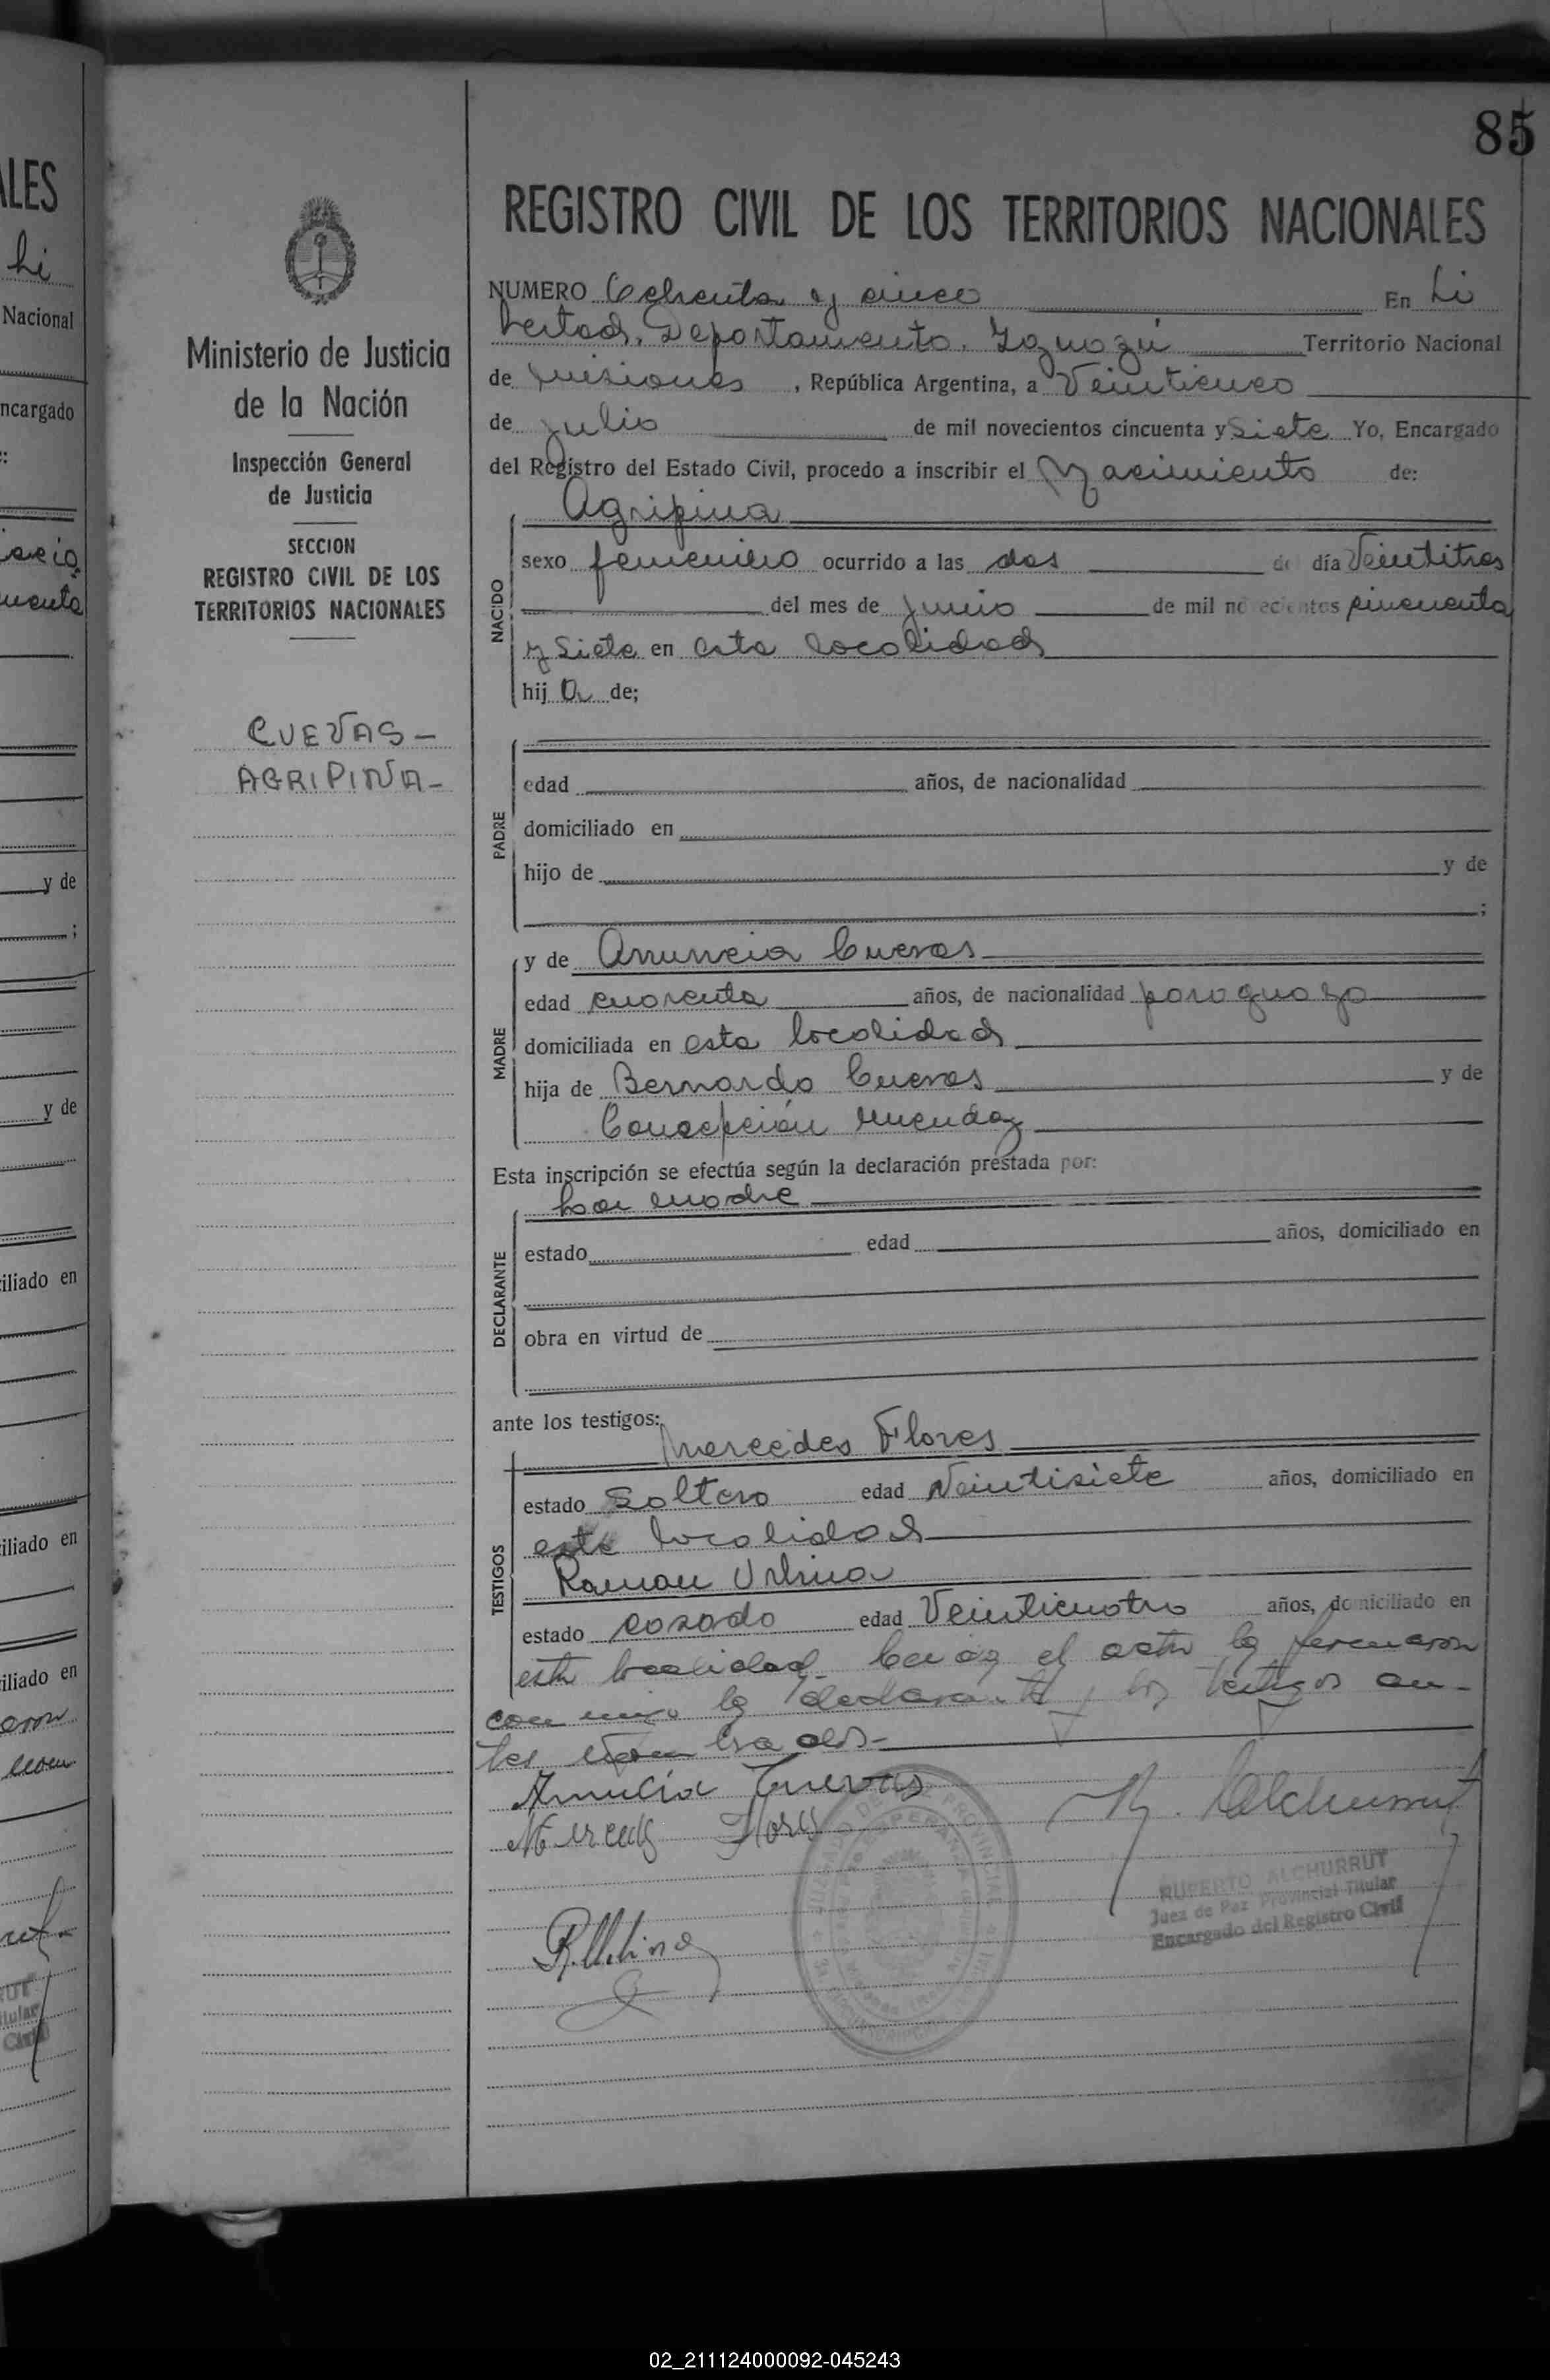 85
REGISTRO CIVIL DE LOS TERRITORIOS NACIONALES
Ministerio de Justicia
de la Nación
Inspección General
de Justicia
SECCION
REGISTRO CIVIL DE LOS
TERRITORIOS NACIONALES
CUEVAS -
AGRIPINA -
NUMERO Ochenta y cinco En Li
bertad, Departamento, Iguazú Territorio Nacional
de Misiones, República Argentina, a Veinticinco
de Julio de mil novecientos cincuenta y Siete Yo, Encargado
del Registro del Estado Civil, procedo a inscribir el Nacimiento de:
Agripina
NACIDO
sexo femenino ocurrido a las dos del día Veintitres
del mes de Junio de mil novecientos cincuenta
y Siete en esta localidad
hij a de;
PADRE
edad años, de nacionalidad
domiciliado en
hijo de y de
;
MADRE
y de Anuncia Cuevas
edad cuarenta años, de nacionalidad paraguaya
domiciliada en esta localidad
hija de Bernardo Cuevas y de
Concepción
Esta inscripción se efectúa según la declaración prestada por:
DECLARANTE
La madre
estado edad años, domiciliado en
obra en virtud de
ante los testigos:
TESTIGOS
Mercedes Flores
estado Soltero edad Veintisiete años, domiciliado en
esta localidad
Ramon Urbina
estado casado edad Veinticuatro años, domiciliado en
esta localidad. el acta la firmaron
la declarante y los testigos an-
tes
Anuncia Cuevas
Mercedes Flores
R. Alchurrut
RUPERTO ALCHURRUT
Juez de Paz Provincial Titular
Encargado del Registro Civil
R. Urbina
ALES
Li
Nacional
ncargado
:
y de
;
y de
iliado en
iliado en
iliado en
02_211124000092-045243